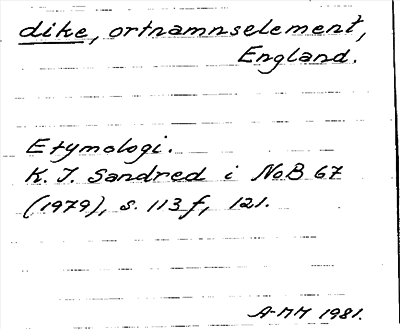 dike, ortnamnselement,
England.
Etymologi.
K. I. Sandred i NoB 67
(1979), s. 113 f, 121.
A-MM 1981.